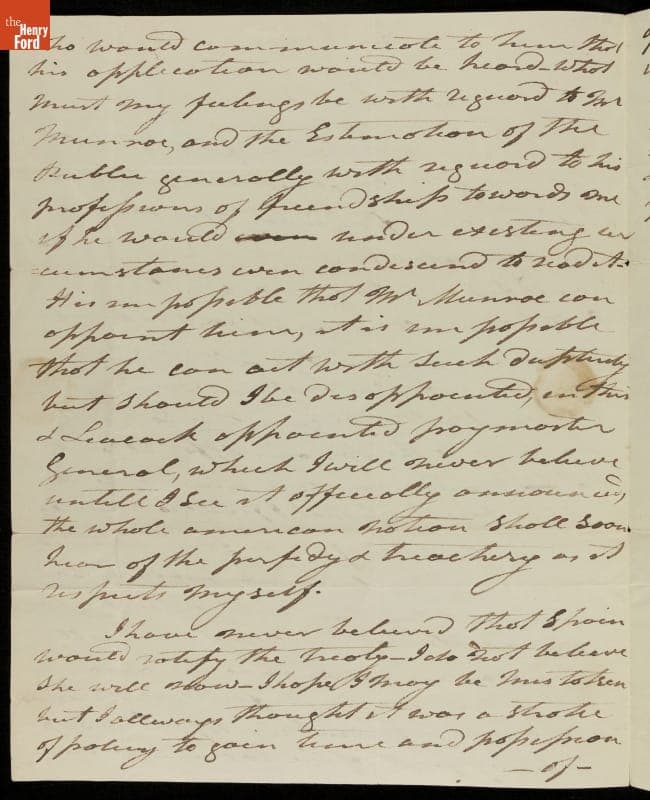 the
Henry
Ford
who would communicate to him that
his application would be heard. What
must my feelings be with reguard to Mr
Munroe, and the Estimation of the
Public generally with reguard to his
professions of freindship towards me
if he would under existing cir
=cumstances even condescend to read it.
It is impossible that Mr Munroe can
appoint him, it is impossible
that he can act with such duplicity
but should I be disappointed, in this
& Leacock appointed paymaster
General, which I will never believe
untill I see it officially announced,
the whole american nation shall soon
hear of the perfidy & treachery as it
respects myself.
I have never believed that Spain
would ratify the treaty—I do not believe
she will now—I hope I may be mistaken
but I allways thought it was a stroke
of policy to gain time and possession
—of—